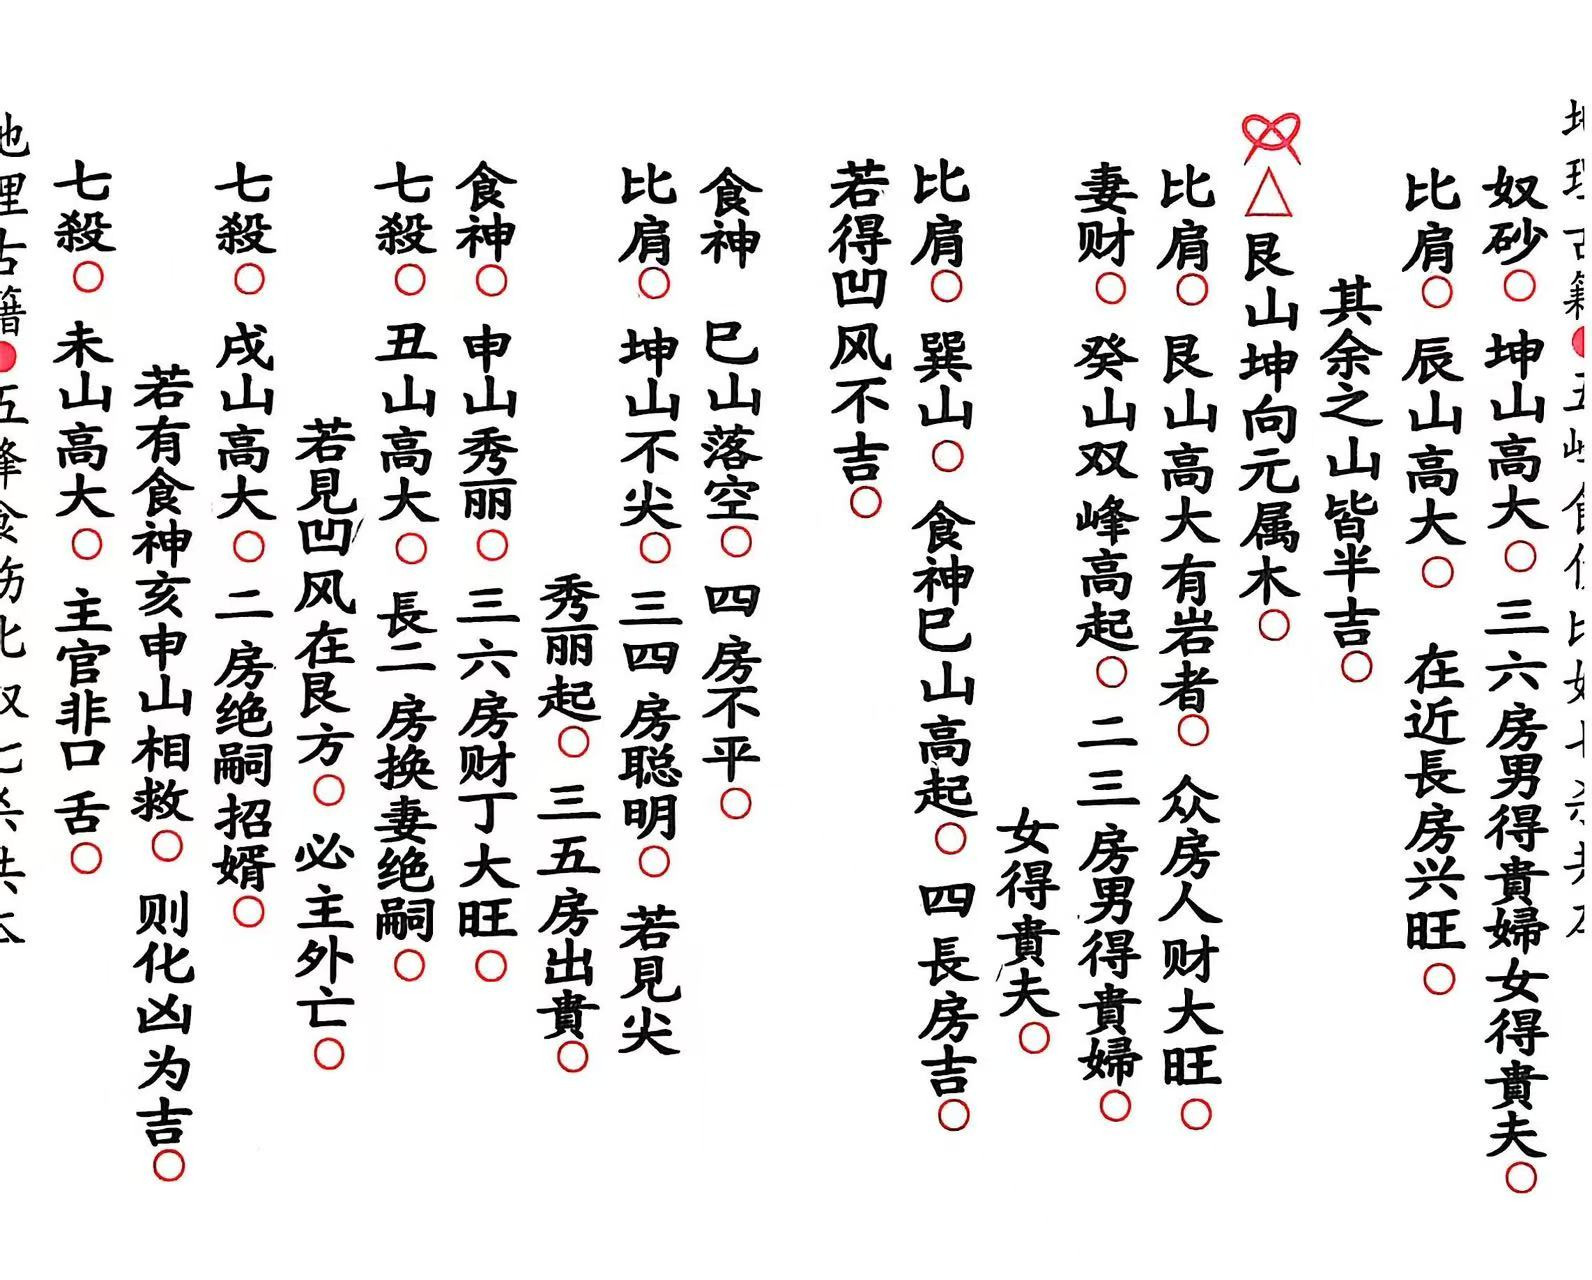 奴砂○坤山高大○三六房男得貴婦女得貴夫○
比肩○辰山高大○在近長房兴旺○
其余之山皆半吉○
△艮山坤向元属木○
比肩○艮山高大有岩者○众房人财大旺○
妻财○癸山双峰高起○二三房男得貴婦○
女得貴夫○
比肩○巽山○食神巳山高起○四長房吉○
若得凹风不吉○
食神 巳山落空○四房不平○
比肩○坤山不尖○三四房聪明○若見尖
秀丽起○三五房出貴○
食神○申山秀丽○三六房财丁大旺○
七殺○丑山高大○長二房换妻绝嗣○
若見凹风在艮方○必主外亡○
七殺○戌山高大○二房绝嗣招婿○
若有食神亥申山相救○则化凶为吉○
七殺○未山高大○主官非口舌○